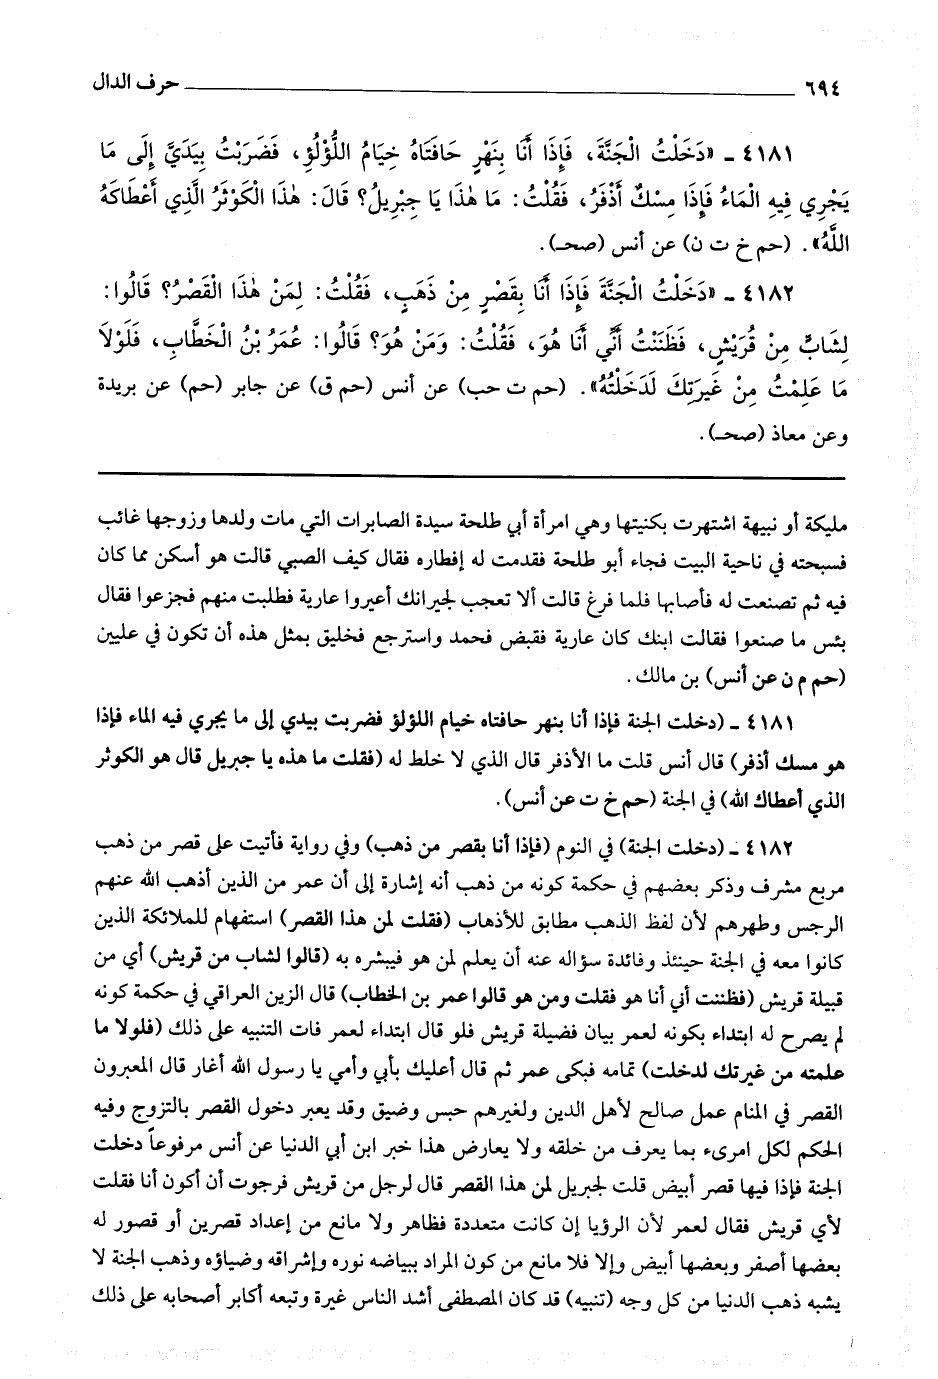 ٦٩٤ حرف الدال
٤١٨١ ـ «دَخَلْتُ الْجَنَّةَ، فَإِذَا أَنَا بِنَهْرٍ حَافَتَاهُ خِيَامُ اللُّؤْلُؤِ، فَضَرَبْتُ بِيَدَيَّ إِلَى مَا
يَجْرِي فِيهِ الْمَاءُ فَإِذَا مِسْكٌ أَذْفَرُ، فَقُلْتُ: مَا هٰذَا يَا جِبْرِيلُ؟ قَالَ: هٰذَا الْكَوْثَرُ الَّذِي أَعْطَاكَهُ
اللَّهُ». (حم خ ت ن) عن أنس (صحـ).
٤١٨٢ ـ «دَخَلْتُ الْجَنَّةَ فَإِذَا أَنَا بِقَصْرٍ مِنْ ذَهَبٍ، فَقُلْتُ: لِمَنْ هٰذَا الْقَصْرُ؟ قَالُوا:
لِشَابٍّ مِنْ قُرَيْشٍ، فَظَنَنْتُ أَنِّي أَنَا هُوَ، فَقُلْتُ: وَمَنْ هُوَ؟ قَالُوا: عُمَرُ بْنُ الْخَطَّابِ، فَلَوْلَا
مَا عَلِمْتُ مِنْ غَيرَتِكَ لَدَخَلْتُهُ». (حم ت حب) عن أنس (حم ق) عن جابر (حم) عن بريدة
وعن معاذ (صحـ).
مليكة أو نبيهة اشتهرت بكنيتها وهي امرأة أبي طلحة سيدة الصابرات التي مات ولدها وزوجها غائب
فسبحته في ناحية البيت فجاء أبو طلحة فقدمت له إفطاره فقال كيف الصبي قالت هو أسكن مما كان
فيه ثم تصنعت له فأصابها فلما فرغ قالت ألا تعجب لجيرانك أعيروا عارية فطلبت منهم فجزعوا فقال
بئس ما صنعوا فقالت ابنك كان عارية فقبض فحمد واسترجع فخليق بمثل هذه أن تكون في عليين
(حم م ن عن أنس) بن مالك.
٤١٨١ ـ (دخلت الجنة فإذا أنا بنهر حافتاه خيام اللؤلؤ فضربت بيدي إلى ما يجري فيه الماء فإذا
هو مسك أذفر) قال أنس قلت ما الأذفر قال الذي لا خلط له (فقلت ما هذه يا جبريل قال هو الكوثر
الذي أعطاك الله) في الجنة (حم خ ت عن أنس).
٤١٨٢ ـ (دخلت الجنة) في النوم (فإذا أنا بقصر من ذهب) وفي رواية فأتيت على قصر من ذهب
مربع مشرف وذكر بعضهم في حكمة كونه من ذهب أنه إشارة إلى أن عمر من الذين أذهب الله عنهم
الرجس وطهرهم لأن لفظ الذهب مطابق للأذهاب (فقلت لمن هذا القصر) استفهام للملائكة الذين
كانوا معه في الجنة حينئذ وفائدة سؤاله عنه أن يعلم لمن هو فيبشره به (قالوا لشاب من قريش) أي من
قبيلة قريش (فظننت أني أنا هو فقلت ومن هو قالوا عمر بن الخطاب) قال الزين العراقي في حكمة كونه
لم يصرح له ابتداء بكونه لعمر بيان فضيلة قريش فلو قال ابتداء لعمر فات التنبيه على ذلك (فلولا ما
علمته من غيرتك لدخلت) تمامه فبكى عمر ثم قال أعليك بأبي وأمي يا رسول الله أغار قال المعبرون
القصر في المنام عمل صالح لأهل الدين ولغيرهم حبس وضيق وقد يعبر دخول القصر بالتزوج وفيه
الحكم لكل امرىء بما يعرف من خلقه ولا يعارض هذا خبر ابن أبي الدنيا عن أنس مرفوعاً دخلت
الجنة فإذا فيها قصر أبيض قلت لجبريل لمن هذا القصر قال لرجل من قريش فرجوت أن أكون أنا فقلت
لأي قريش فقال لعمر لأن الرؤيا إن كانت متعددة فظاهر ولا مانع من إعداد قصرين أو قصور له
بعضها أصفر وبعضها أبيض وإلا فلا مانع من كون المراد ببياضه نوره وإشراقه وضياؤه وذهب الجنة لا
يشبه ذهب الدنيا من كل وجه (تنبيه) قد كان المصطفى أشد الناس غيرة وتبعه أكابر أصحابه على ذلك